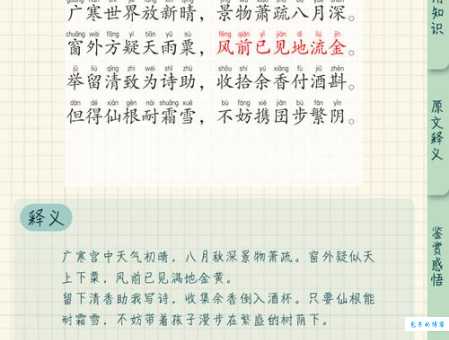 广寒世界放新晴，景物萧疏八月深。
chuāng wài fāng yí tiān yǔ sù
fēng qián yǐ jiàn dì liú jīn
窗外方疑天雨粟，风前已见地流金。
jǔ liú qīng zhì wéi shī zhù
shōu shí yú xiāng fù jiǔ zhēn
举留清致为诗助，收拾余香付酒斟。
dàn dé xiān gēn nài shuāng xuě
bù fáng xié jiàn bù fán yīn
但得仙根耐霜雪，不妨携团步繁阴。
释义
广寒宫中天气初晴，八月秋深景物萧疏。窗外疑似天
上下粟，风前已见满地金黄。
留下清香助我写诗，收集余香倒入酒杯。只要仙根能
耐霜雪，不妨带着孩子漫步在繁盛的树荫下。
知识
原文释义
鉴赏感悟